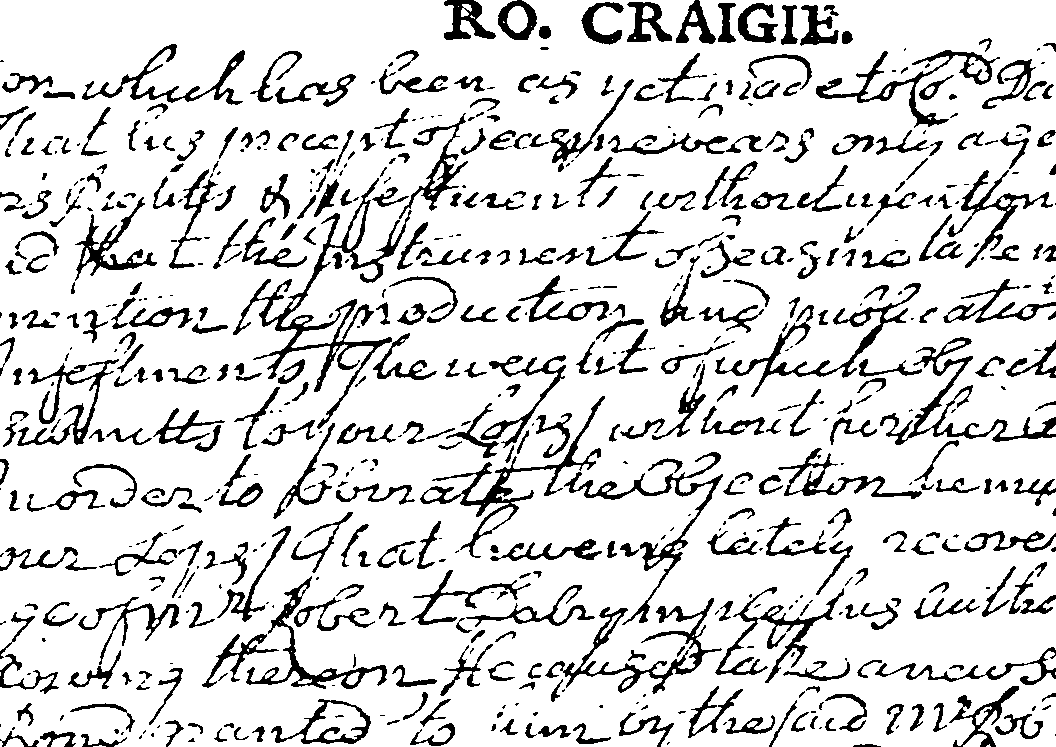 RO. CRAIGIE.
on which has been as yet made to Coll Da
That his precept of Seasine bears only a ge
rs Rights & Infeftments without mention
id that the Instrument of Seasine taken
mention the production and publication
Infeftments, The weight of which Objecti
submitts to your Lops/ without further
In order to obviate the Objection he may
our Lops/ That haveing lately recover
ge of Mr Robert Dalrymple his autho
owing thereon, He caused take a new s
Bond granted to him by the said Mr Rob